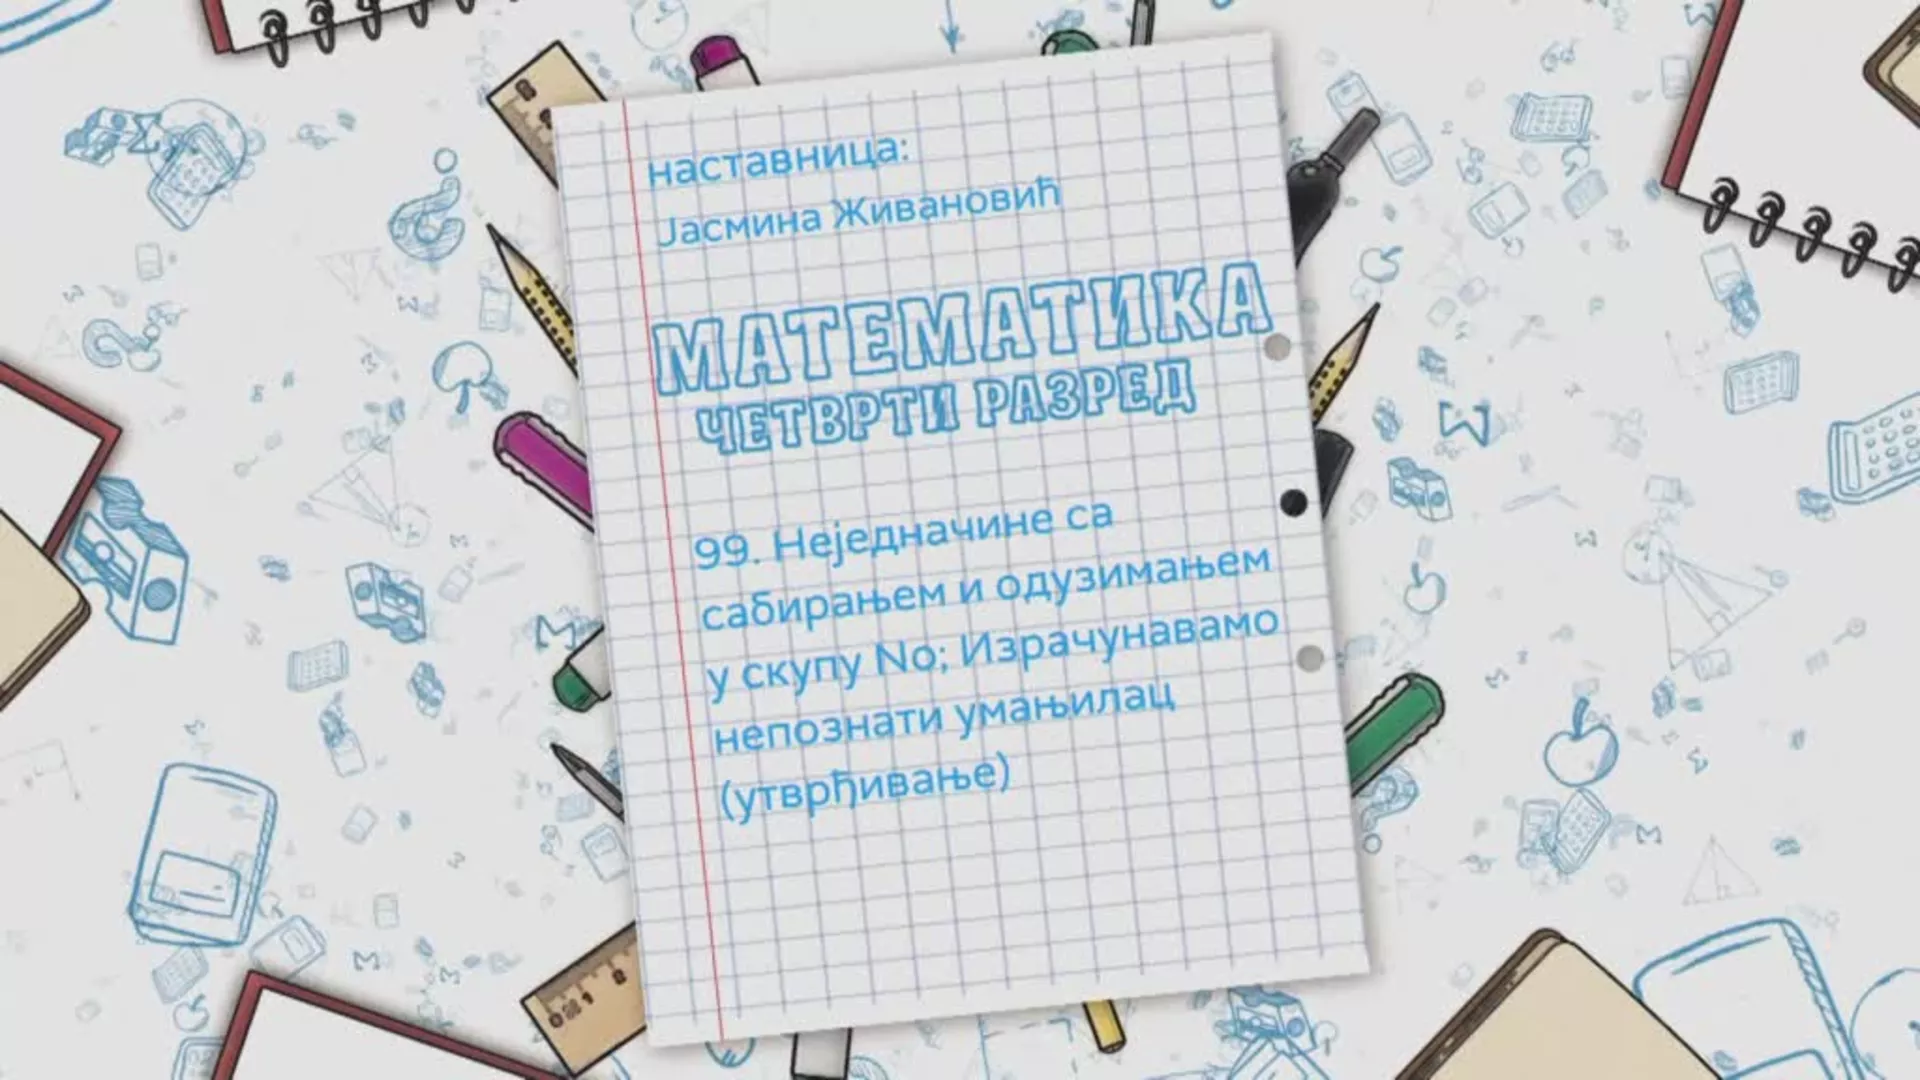 наставница:
Јасмина Живановић
МАТЕМАТИКА
ЧЕТВРТИ РАЗРЕД
99. Неједначине са
сабирањем и одузимањем
у скупу No; Израчунавамо
непознати умањилац
(утврђивање)